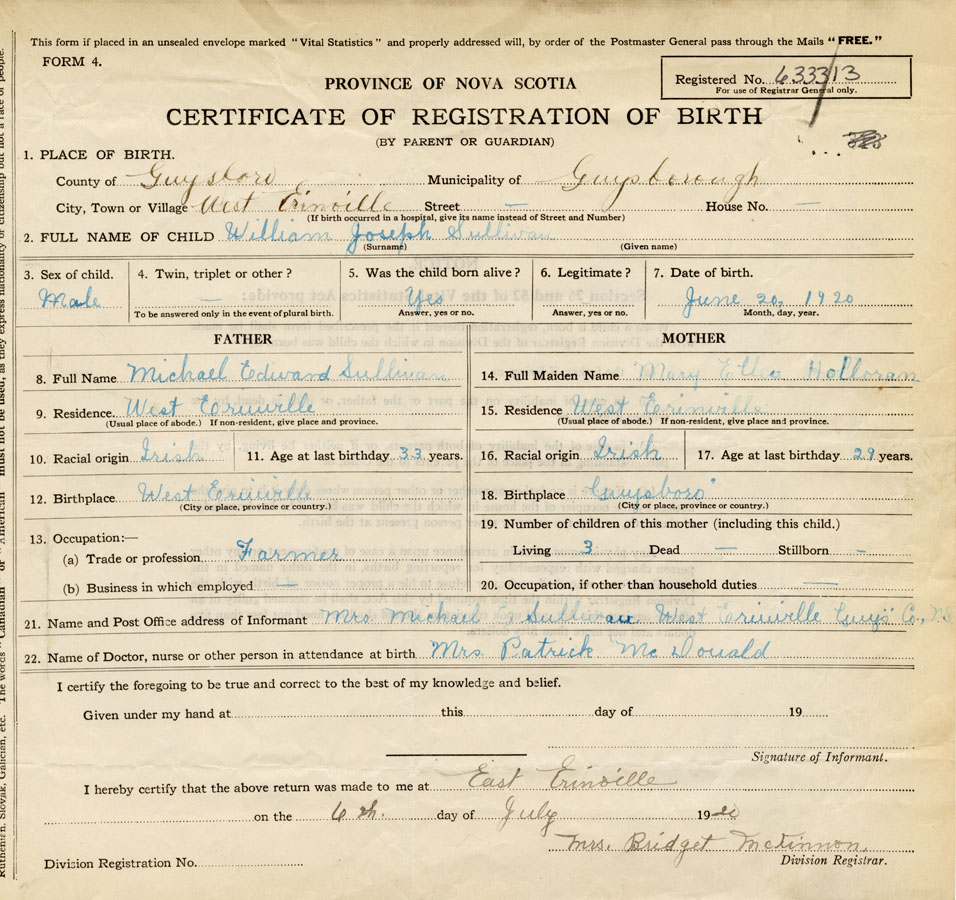 This form if placed in an unsealed envelope marked "Vital Statistics" and properly addressed will, by order of the Postmaster General pass through the Mails "FREE."
FORM 4.
Registered No. 633313
For use of Registrar General only.
PROVINCE OF NOVA SCOTIA
CERTIFICATE OF REGISTRATION OF BIRTH
(BY PARENT OR GUARDIAN)
1. PLACE OF BIRTH.
County of Guysboro Municipality of Guysborough
City, Town or Village West Erinville Street — House No. —
(If birth occurred in a hospital, give its name instead of Street and Number)
2. FULL NAME OF CHILD William Joseph Sullivan
(Surname) (Given name)
3. Sex of child. 4. Twin, triplet or other? 5. Was the child born alive? 6. Legitimate? 7. Date of birth.
Male — Yes June 20, 1920
To be answered only in the event of plural birth. Answer, yes or no. Answer, yes or no. Month, day, year.
FATHER MOTHER
8. Full Name Michael Edward Sullivan 14. Full Maiden Name Mary Holloran
9. Residence. West Erinville 15. Residence West Erinville
(Usual place of abode.) If non-resident, give place and province. (Usual place of abode.) If non-resident, give place and province.
10. Racial origin Irish 11. Age at last birthday 33 years. 16. Racial origin Irish 17. Age at last birthday 29 years.
12. Birthplace West Erinville 18. Birthplace "Guysboro"
(City or place, province or country.) (City or place, province or country.)
13. Occupation:— 19. Number of children of this mother (including this child.)
(a) Trade or profession Farmer Living 3 Dead — Stillborn -
(b) Business in which employed — 20. Occupation, if other than household duties —
21. Name and Post Office address of Informant Mrs. Michael E Sullivan West Erinville Guys Co., N.S
22. Name of Doctor, nurse or other person in attendance at birth Mrs Patrick McDonald
I certify the foregoing to be true and correct to the best of my knowledge and belief.
Given under my hand at this day of 19
Signature of Informant.
I hereby certify that the above return was made to me at East Erinville
on the 6th. day of July 1920
Mrs. Bridget McKinnon.
Division Registration No. Division Registrar.